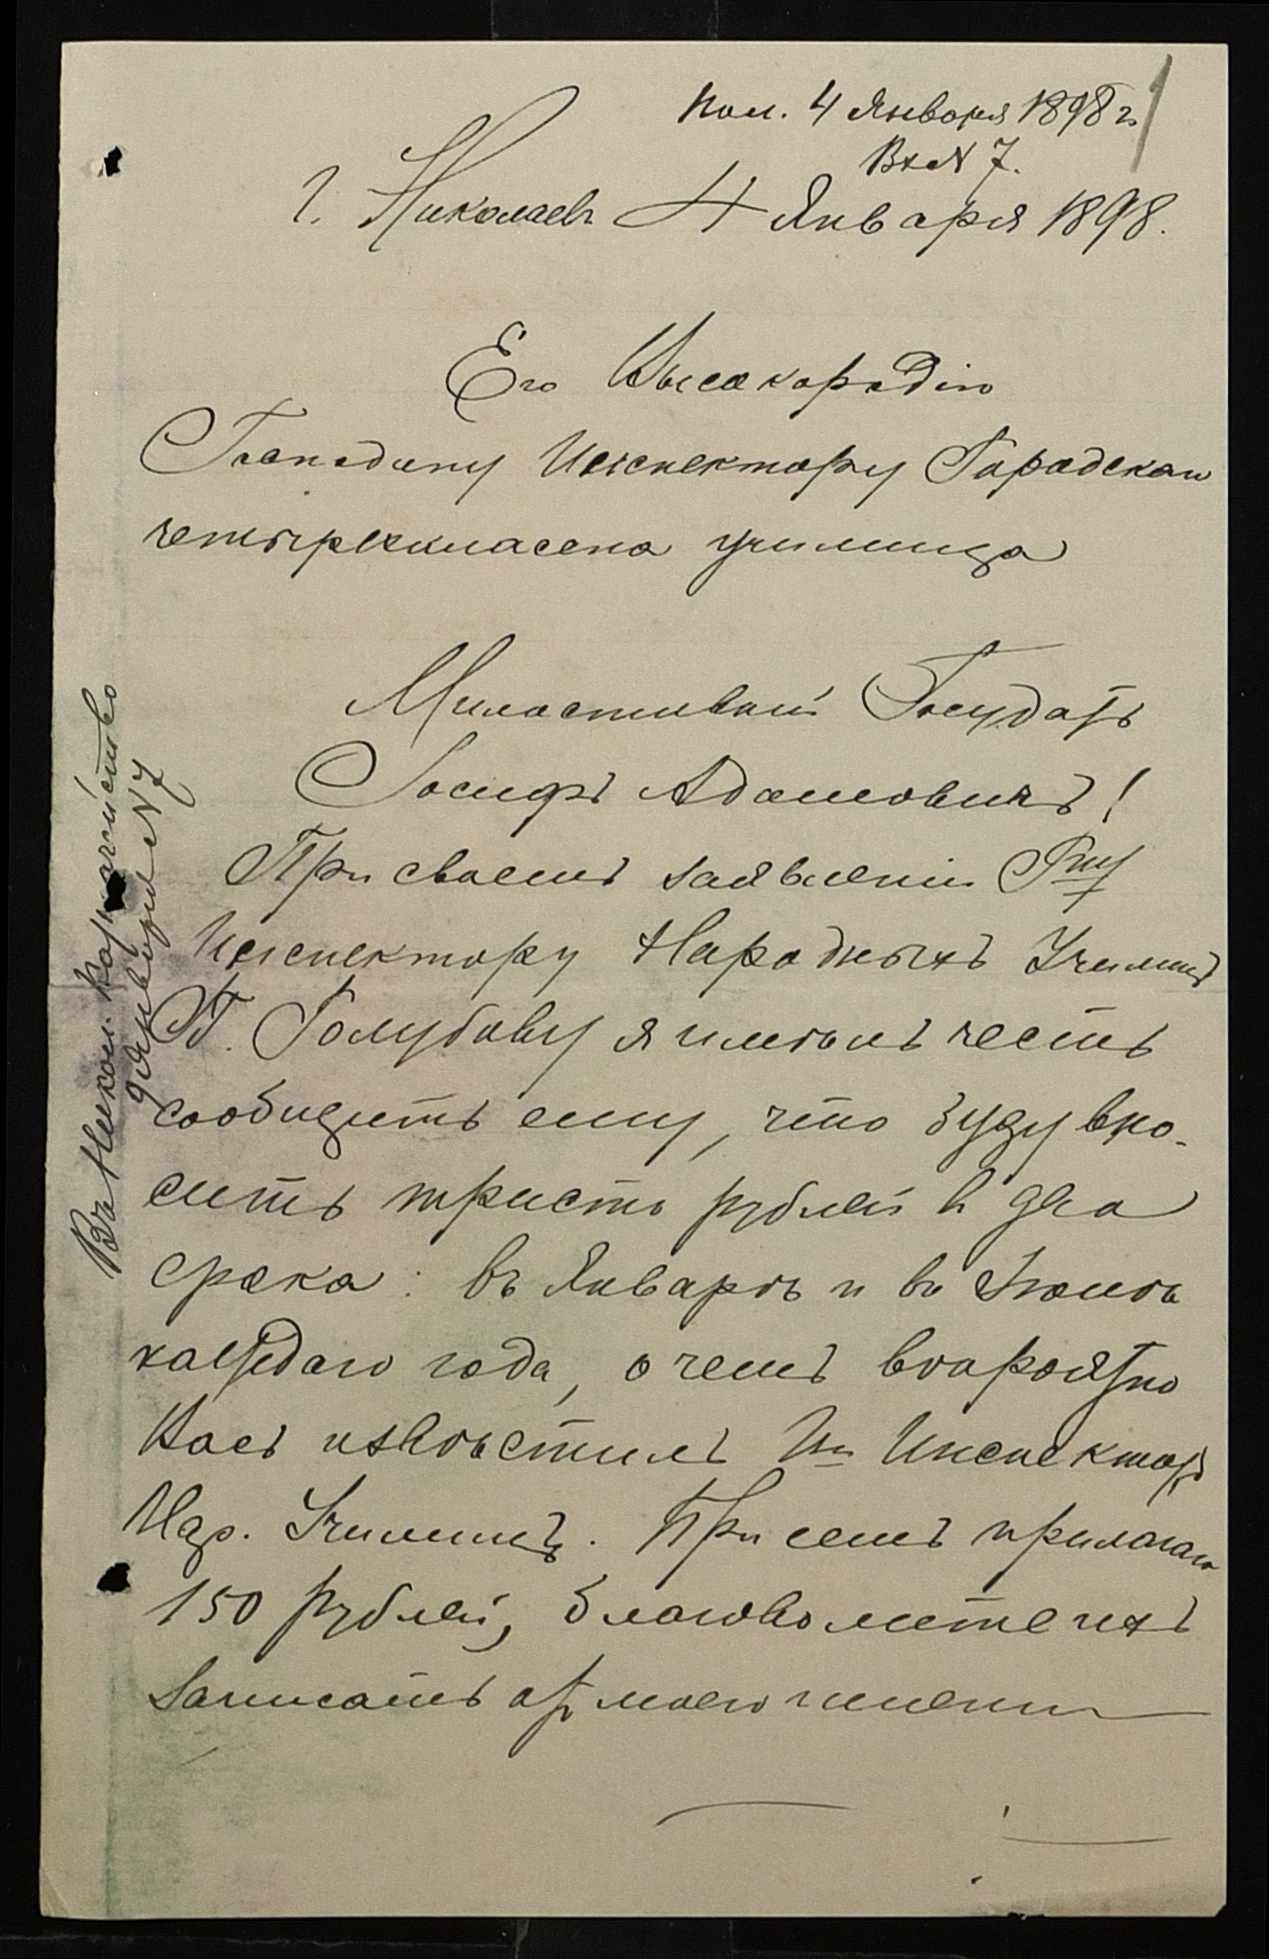 Пол. 4 Января 1898 г.
Вх № 7.
1
Г. Николаевъ 4 Января 1898.
Его Высокородію
Господину Инспектору Городскаго
четырехкласснаго училища
Милостивый Государь
Іосифъ Адамовичъ!
При своемъ заявленіи Гну
Инспектору Народныхъ Училищъ
Г. Голубову я имѣлъ честь
сообщить ему, что буду вно-
сить триста рублей въ два
срока: въ Январѣ и въ Іюнѣ
каждаго года, о чемъ вѣроятно
Васъ извѣстилъ Гнъ Инспекторъ
Нар. Училищъ. При семъ прилагаю
150 рублей, благоволите ихъ
записать отъ моего имени
Въ Никол. Казначейство
9 Января № 7